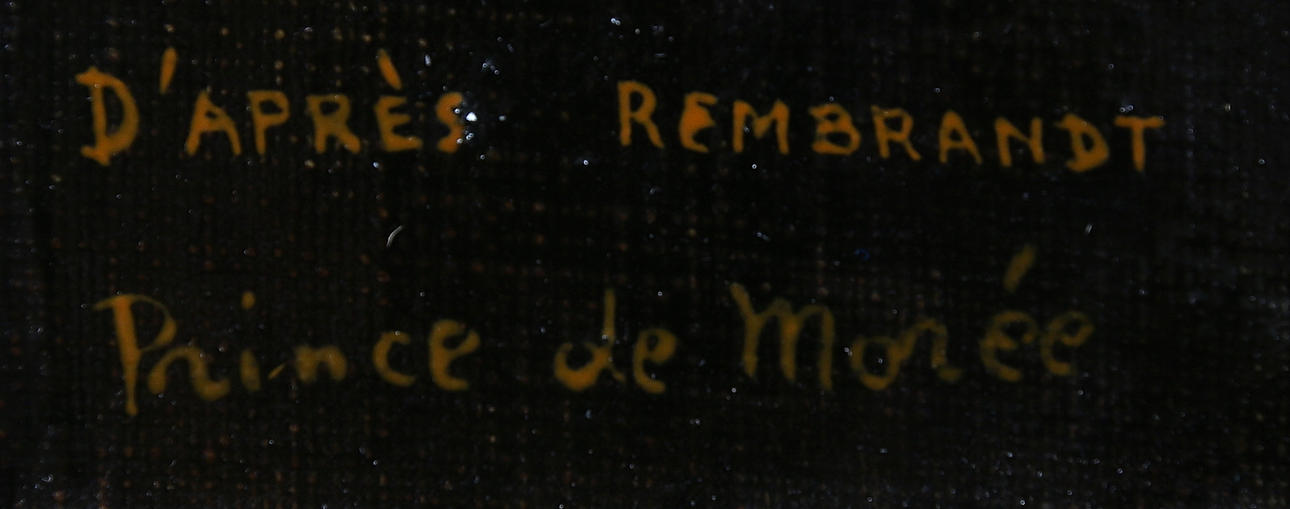 D'APRÈS REMBRANDT
Prince de Morée